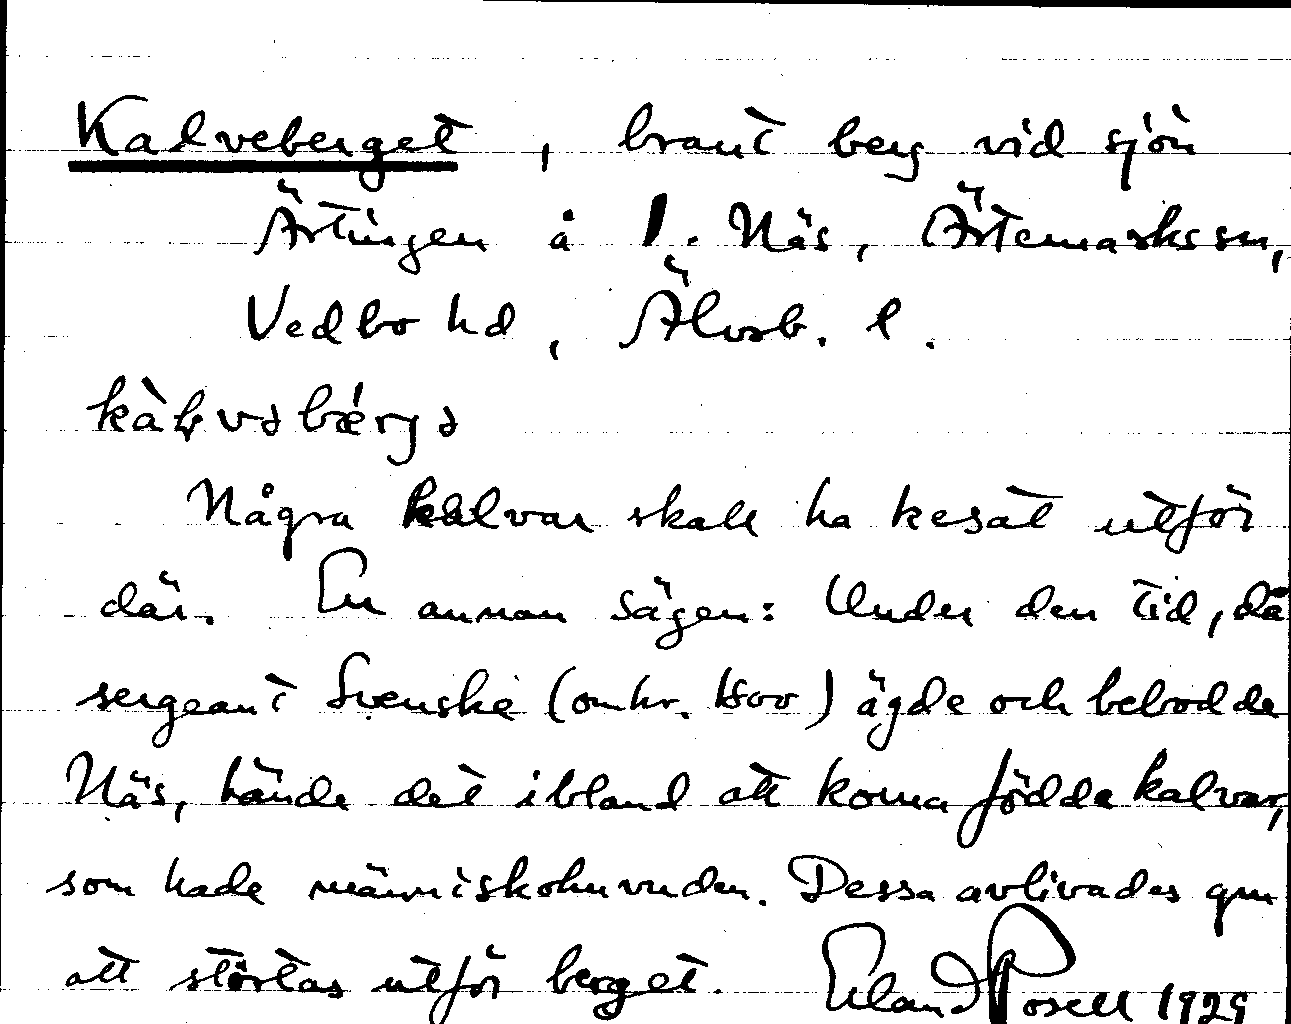 Kalveberget, brant berg vid sjön
Ärtingen å 1. Näs, Ärtemarks sn,
Vedbo hd, Älvsb. l.
Några kalvar skall ha kesat utför
där. En annan sägen: Under den tid, då
sergeant Svenske (omkr. 1800) ägde och bebodde
Näs, hände det ibland att korna födde kalvar,
som hade människohuvuden. Dessa avlivades gm
att störtas utför berget. Erland Rosell 1929